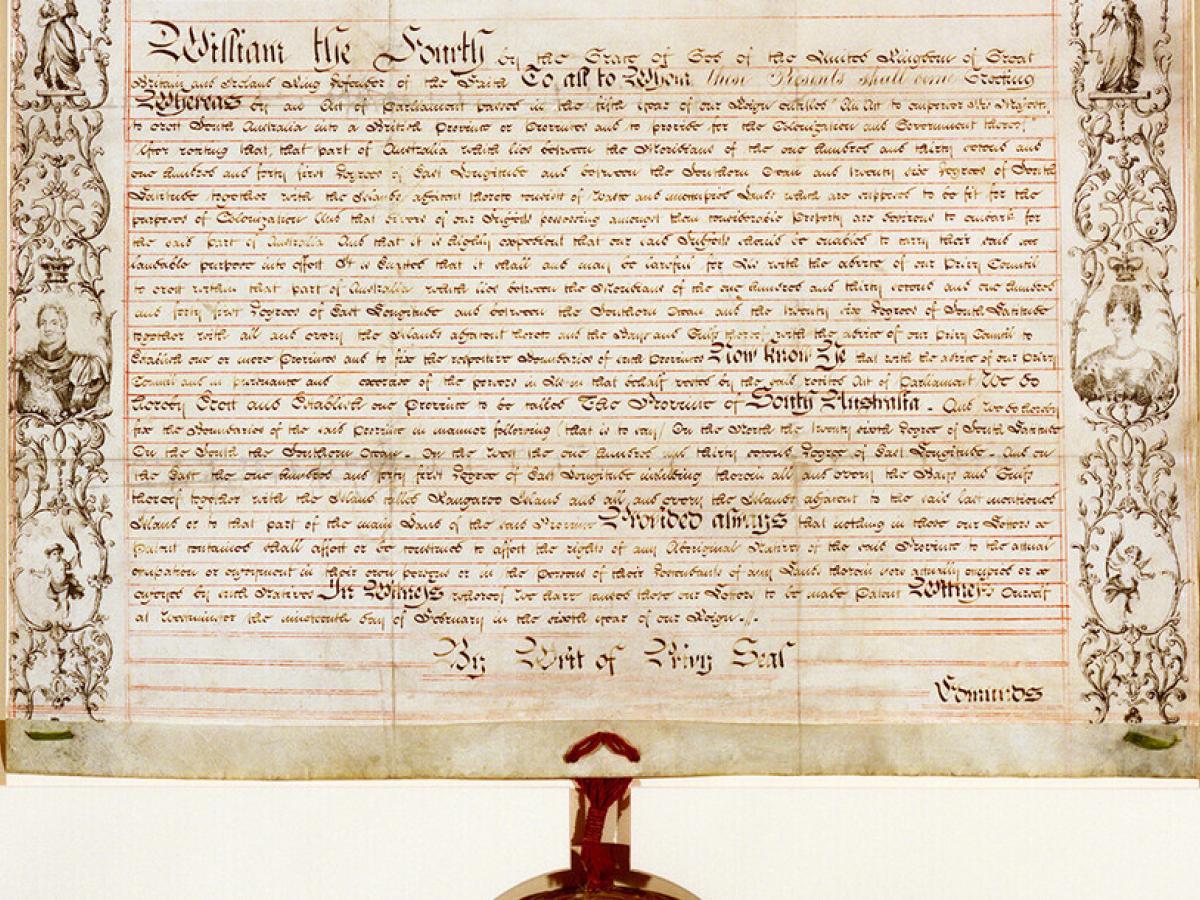 William the Fourth by the Grace of God of the United Kingdom of Great
Britain and Ireland King Defender of the Faith To all to Whom these Presents shall come Greeting
Whereas by an Act of Parliament passed in the fifth year of our Reign entitled "An Act to empower His Majesty
to erect South Australia into a British Province or Provinces and to provide for the Colonization and Government thereof"
After reciting that, that part of Australia which lies between the Meridians of the one hundred and thirty second and
one hundred and forty first Degrees of East Longitude and between the Southern Ocean and twenty six Degrees of South
Latitude together with the Islands adjacent thereto consist of Waste and unoccupied Lands which are supposed to be fit for the
purposes of Colonization And that divers of our Subjects possessing amongst them considerable Property are desirous to embark for
the said part of Australia And that it is highly expedient that our said Subjects should be enabled to carry their said
laudable purpose into effect It is Enacted that it shall and may be lawful for Us with the advice of our Privy Council
to erect within that part of Australia which lies between the Meridians of the one hundred and thirty second and one hundred
and forty first Degrees of East Longitude and between the Southern Ocean and the twenty six Degrees of South Latitude
together with all and every the Islands adjacent thereto and the Bays and Gulfs thereof with the advice of our Privy Council to
Establish one or more Provinces and to fix the respective Boundaries of such Provinces Now Know Ye that with the advice of our Privy
Council and in pursuance and exercise of the powers in Us in that behalf vested by the said recited Act of Parliament We do
hereby Erect and Establish one Province to be called The Province of South Australia. And we do hereby
fix the Boundaries of the said Province in manner following (that is to say) On the North the twenty sixth Degree of South Latitude
On the South the Southern Ocean - On the West the one hundred and thirty second Degree of East Longitude - And on
the East the one hundred and forty first Degree of East Longitude including therein all and every the Bays and Gulfs
thereof together with the Island called Kangaroo Island and all and every the Islands adjacent to the said last mentioned
Island or to that part of the main Land of the said Province Provided always that nothing in these our Letters
Patent contained shall affect or be construed to affect the rights of any Aboriginal Natives of the said Province to the actual
occupation or enjoyment in their own persons or in the persons of their Descendants of any Lands therein now actually occupied or
enjoyed by such Natives In Witness whereof We have caused these our Letters to be made Patent Witness Ourself
at Westminster the nineteenth day of February in the sixth year of our Reign.
By Writ of Privy Seal
Edmunds